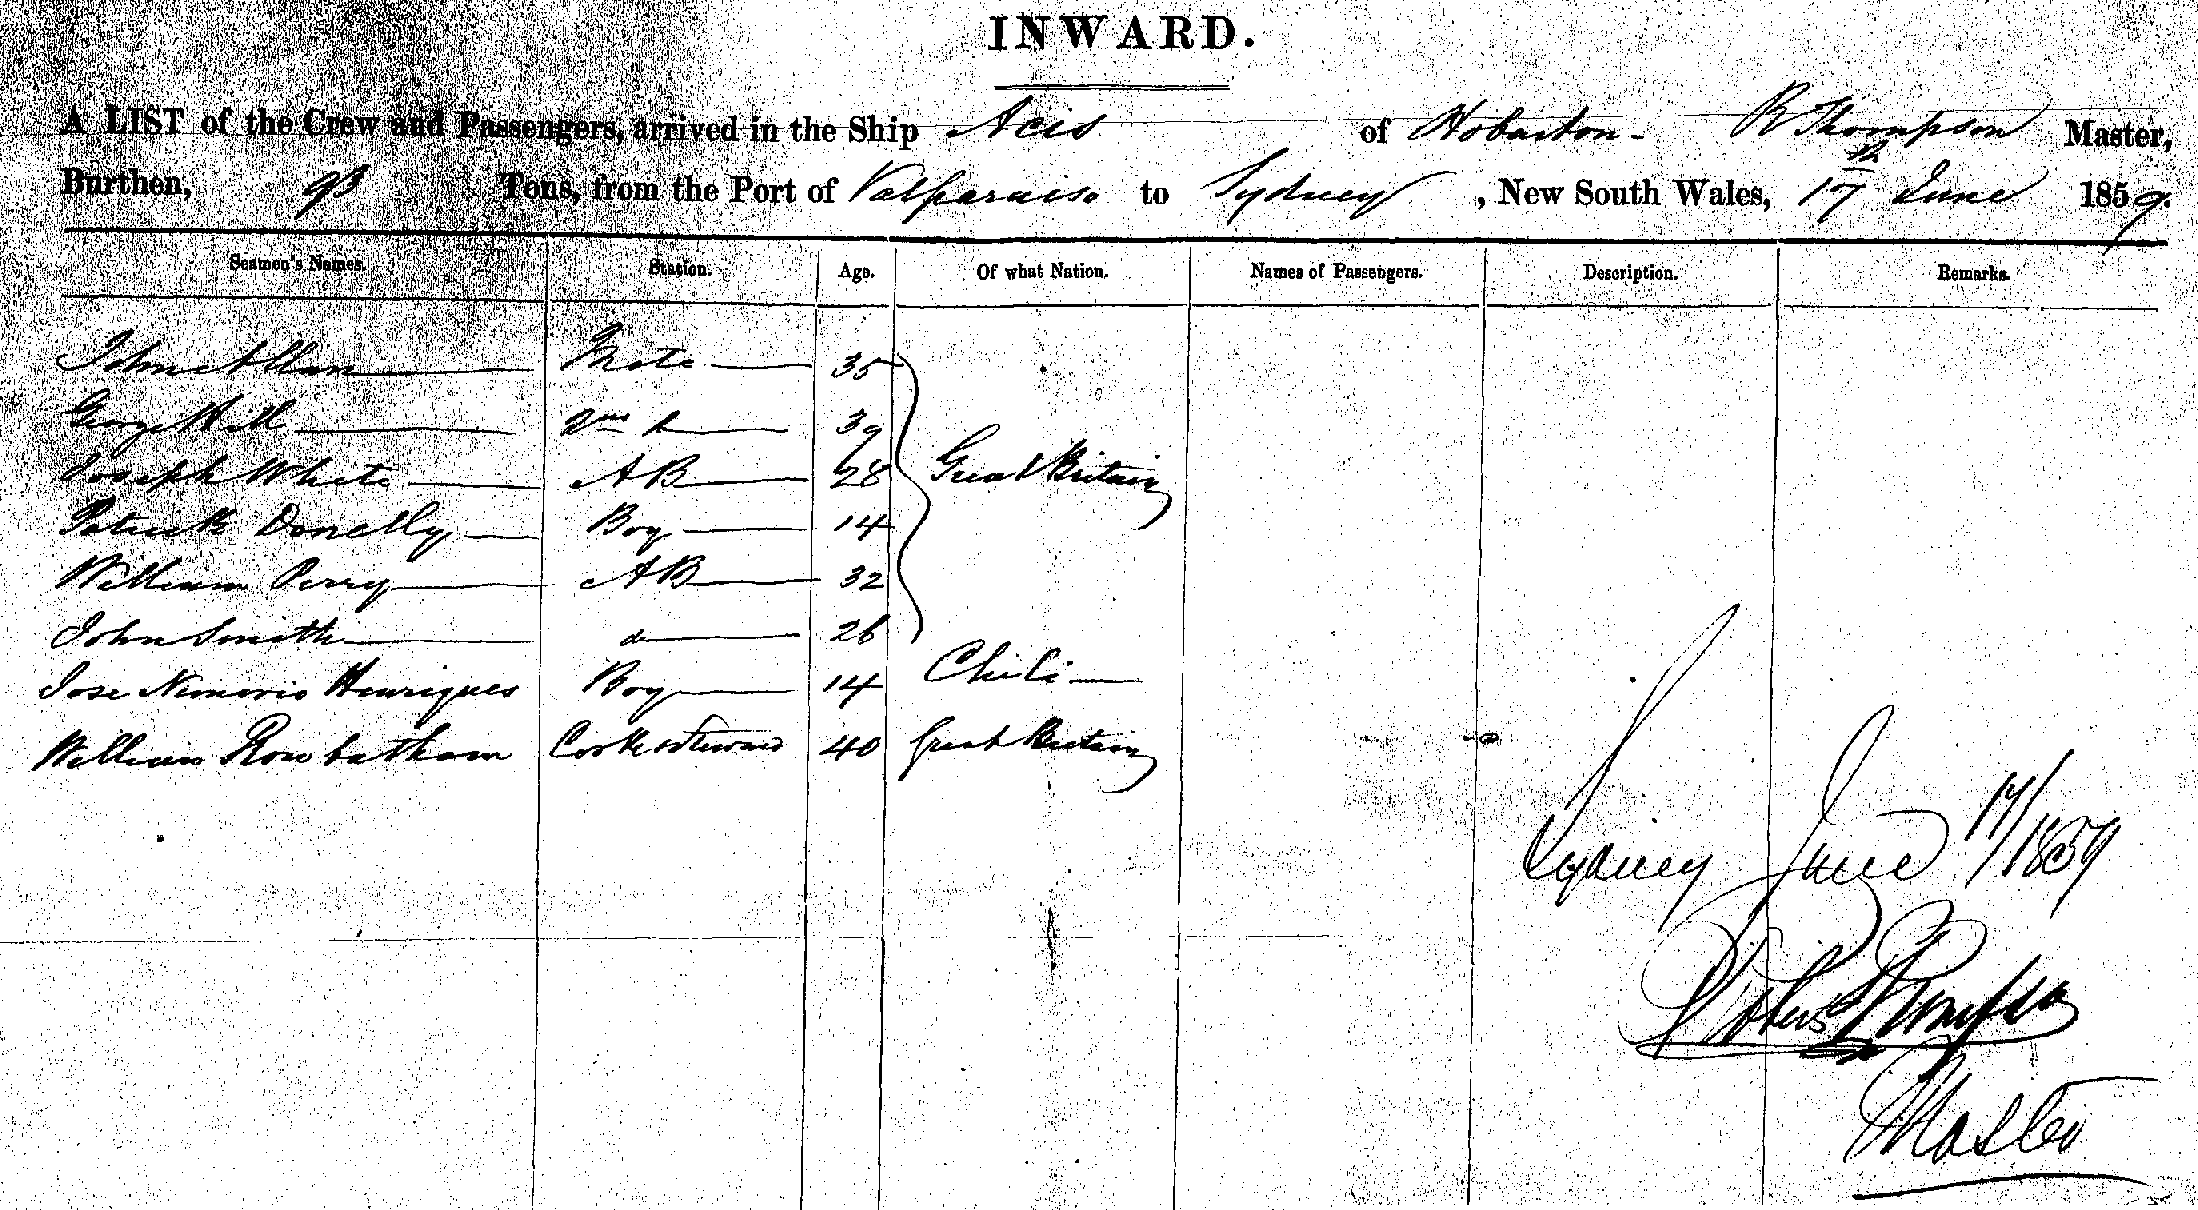 INWARD.
A LIST of the Crew and Passengers, arrived in the Ship Acis of Hobarton - R Thompson Master,
Burthen, 93 Tons, from the Port of Valparaiso to Sydney, New South Wales, 17th June 1859.
Seamen's Names. Station. Age. Of what Nation. Names of Passengers. Description. Remarks.
John Allan Mate 35
George Hill 2nd d 39
Joseph White AB 28 Great Britain
Patrick Donelly Boy 14
William Perry AB 32
John Smith d 26
Jose Nemorio Henriques Boy 14 Chili
William Rowbatham Cook & Steward 40 Great Britain
Sydney June 17/1859
Robert Thompson
Master